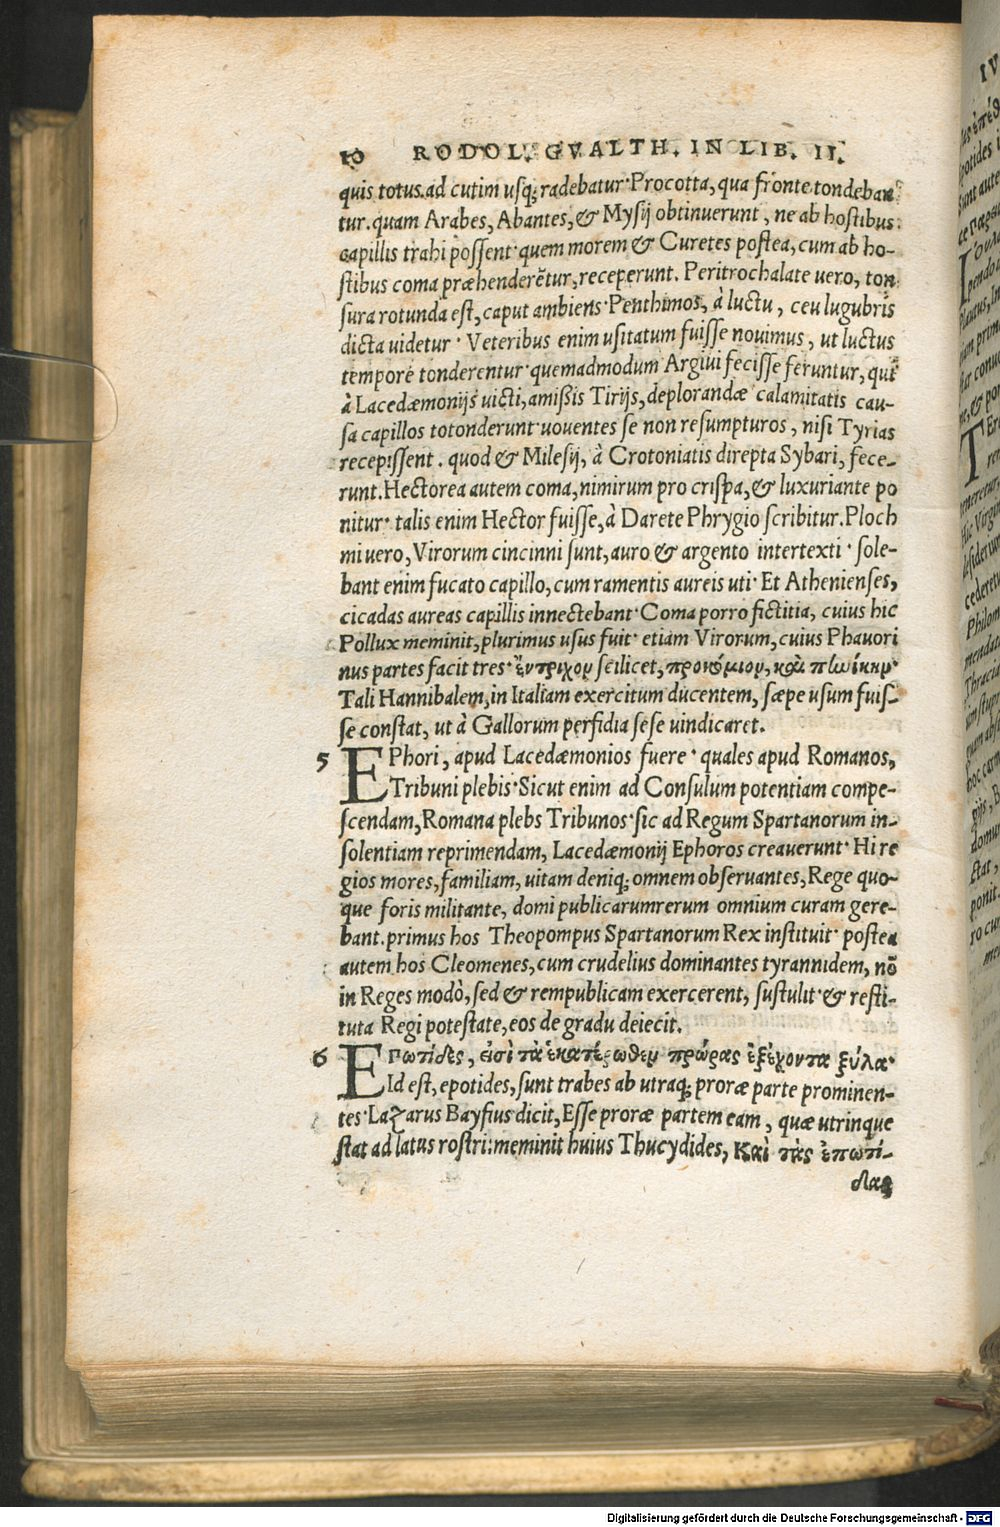 10 RODOL. GVALTH. IN LIB. II.
quis totus ad cutim usq; radebatur· Procotta, qua fronte tondeban
tur. quam Arabes, Abantes, & Mysij obtinuerunt, ne ab hostibus
capillis trahi possent· quem morem & Curetes postea, cum ab ho-
stibus coma præhenderẽtur, receperunt. Peritrochalate uero, ton
sura rotunda est, caput ambiens· Penthimos, à luctu, ceu lugubris
dicta uidetur· Veteribus enim usitatum fuisse nouimus, ut luctus
tempore tonderentur· quemadmodum Argiui fecisse feruntur, qui
à Lacedæmonijs uicti, amißis Tirijs, deplorandæ calamitatis cau-
sa capillos totonderunt· uouentes se non resumpturos, nisi Tyrias
recepissent. quod & Milesij, à Crotoniatis direpta Sybari, fece-
runt. Hectorea autem coma, nimirum pro crispa, & luxuriante po
nitur· talis enim Hector fuisse, à Darete Phrygio scribitur. Ploch
mi uero, Virorum cincinni sunt, auro & argento intertexti· sole-
bant enim fucato capillo, cum ramentis aureis uti· Et Athenienses,
cicadas aureas capillis innectebant· Coma porro fictitia, cuius hic
Pollux meminit, plurimus usus fuit· etiam Virorum, cuius Phauori
nus partes facit tres· ἔντριχον scilicet, προκόμιον, καὶ πηνίκην·
Tali Hannibalem, in Italiam exercitum ducentem, sæpe usum fuis-
se constat, ut à Gallorum perfidia sese uindicaret.
5 EPhori, apud Lacedæmonios fuere· quales apud Romanos,
Tribuni plebis· Sicut enim ad Consulum potentiam compe-
scendam, Romana plebs Tribunos· sic ad Regum Spartanorum in-
solentiam reprimendam, Lacedæmonij Ephoros creauerunt· Hi re
gios mores, familiam, uitam deniq; omnem obseruantes, Rege quo-
que foris militante, domi publicarum rerum omnium curam gere-
bant. primus hos Theopompus Spartanorum Rex instituit· postea
autem hos Cleomenes, cum crudelius dominantes tyrannidem, nō
in Reges modò, sed & rempublicam exercerent, sustulit· & resti-
tuta Regi potestate, eos de gradu deiecit.
6 Επωτίδες, εἰσὶ τὰ ἑκατέρωθεν πρώρας ἐξέχοντα ξύλα·
Id est, epotides, sunt trabes ab utraq; proræ parte prominen-
tes· Lazarus Bayfius dicit, Esse proræ partem eam, quæ utrinque
stat ad latus rostri: meminit huius Thucydides, καὶ τὰς ἐπωτί-
δας
Digitalisierung gefördert durch die Deutsche Forschungsgemeinschaft - DFG